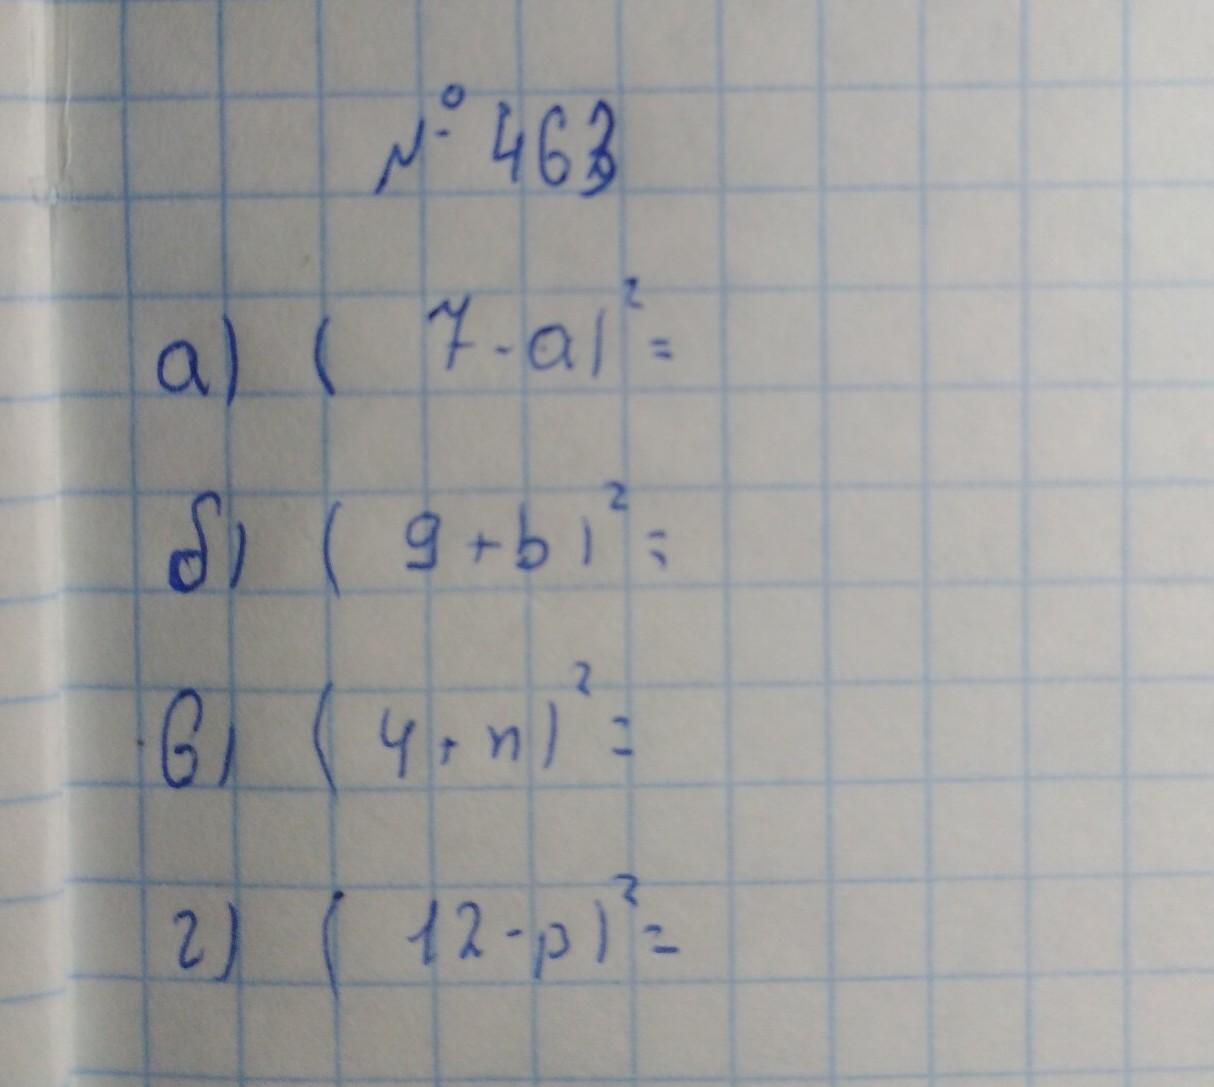 № 463
а) ( 7 - a)² =
б) ( 9 + b)² =
в) ( 4 + n)² =
г) ( 12 - p)² =